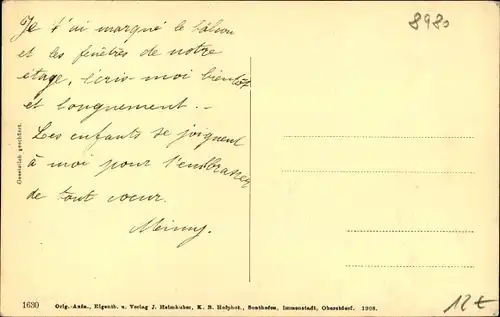 8980
Je t'ai marqué le bâlcon
et les fenêtres de notre
étage, écris-moi bientôt
et longuement. -
Les enfants se joignent
à moi pour t'embrasser
de tout coeur.
Minny.
Gesetzlich geschützt.
1630 Orig.-Aufn., Eigenth. u. Verlag J. Heimhuber, K. B. Hofphot., Sonthofen, Immenstadt, Oberstdorf. 1908.
12€